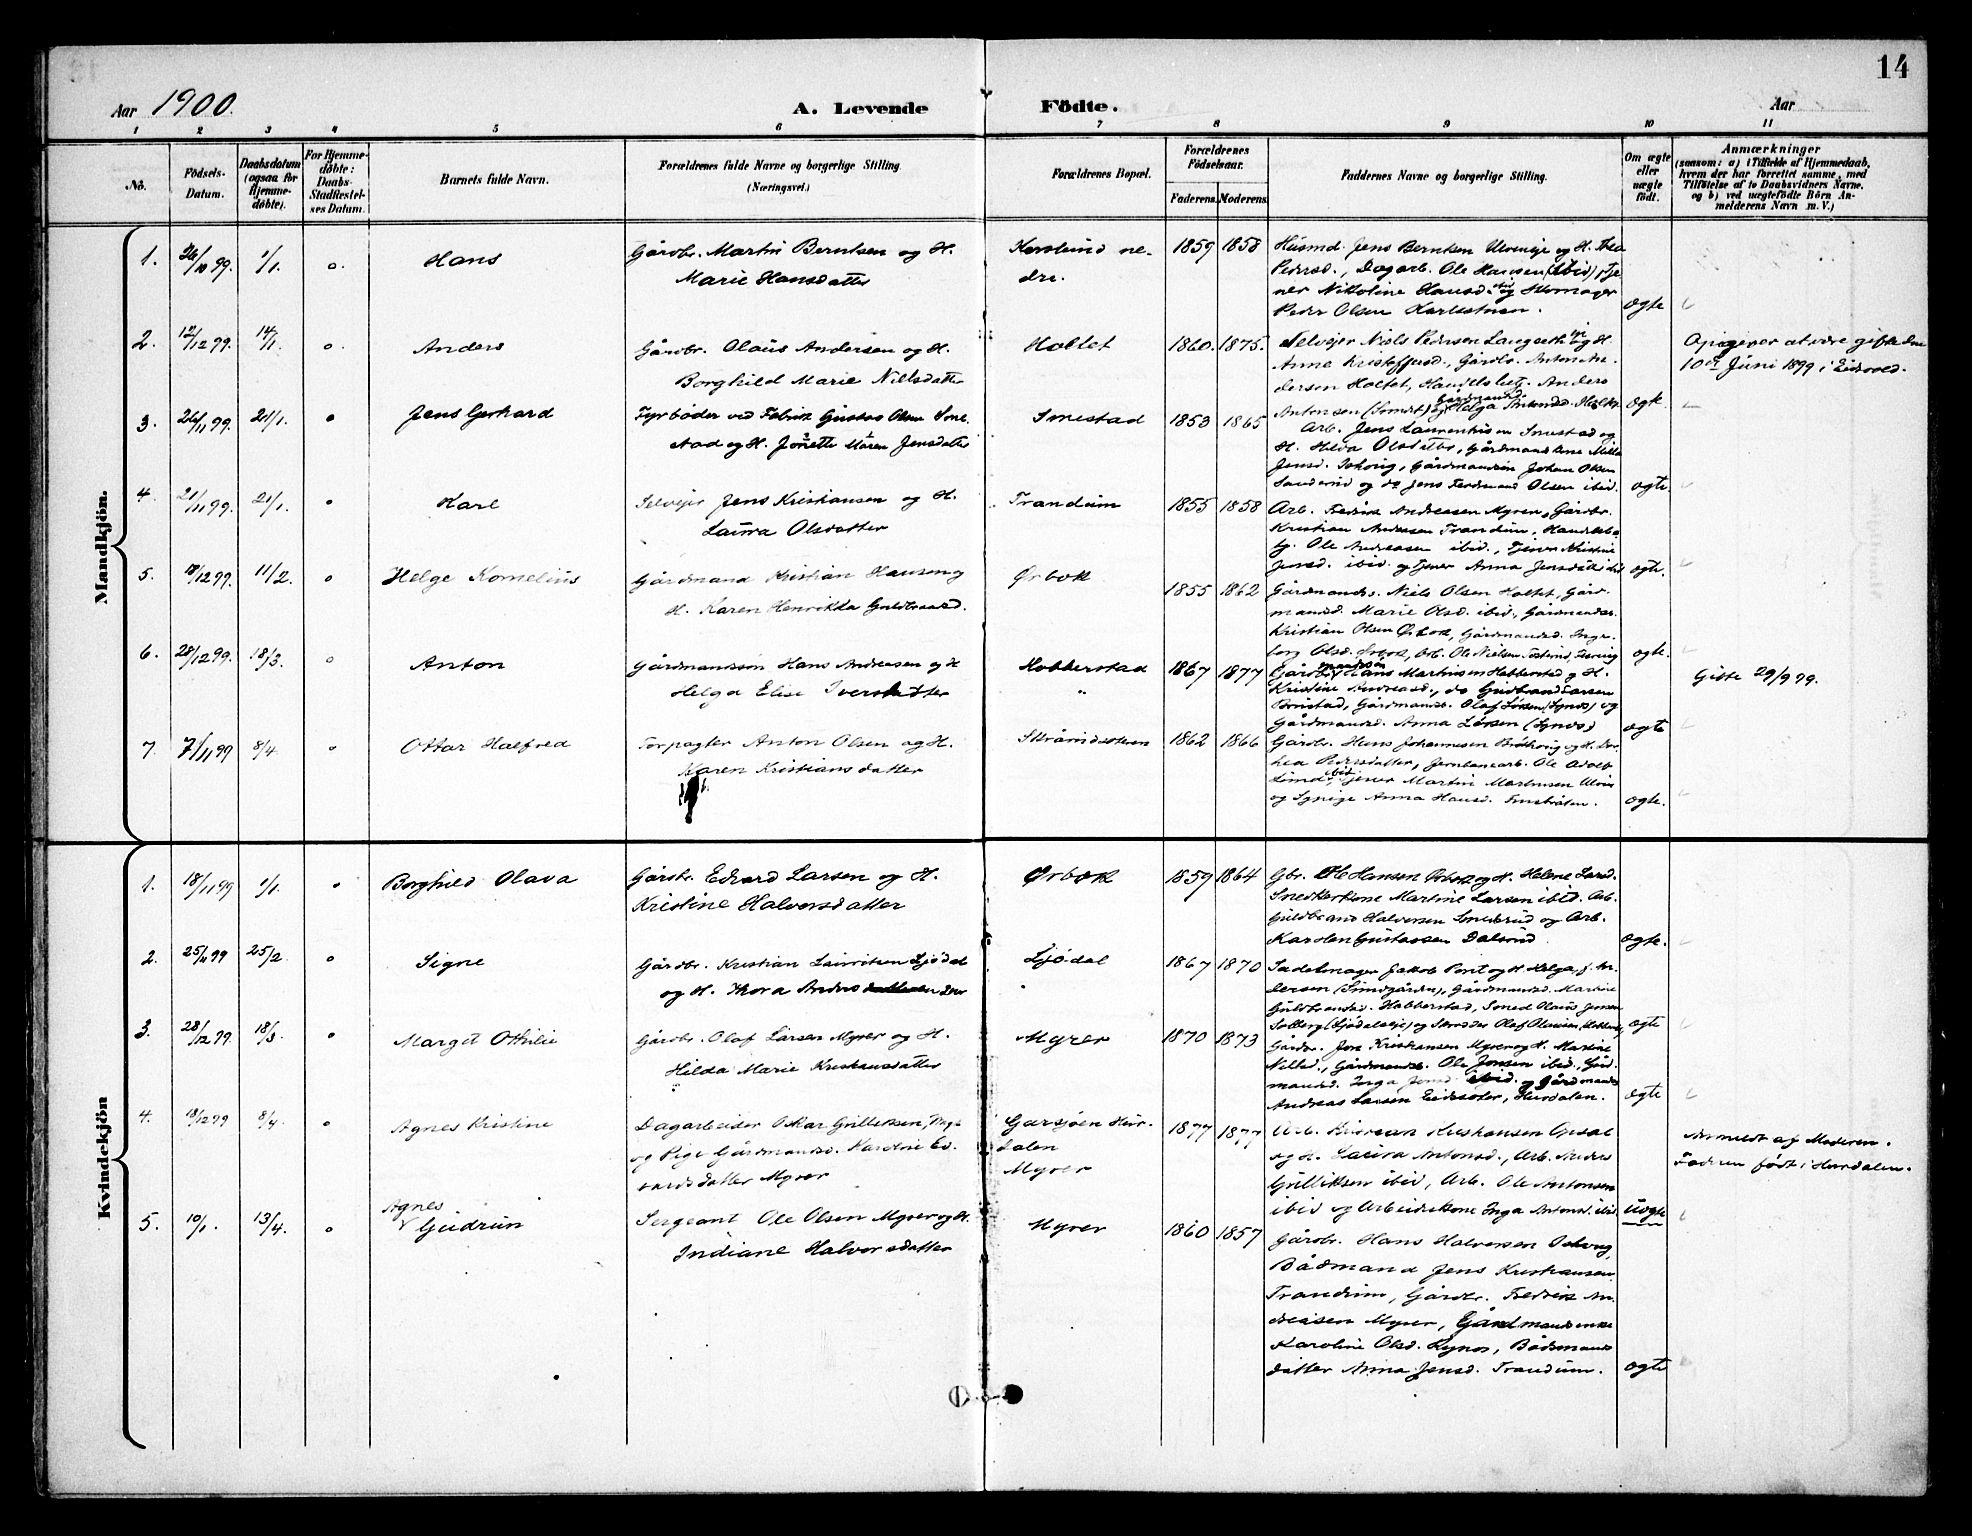 14
Aar 1900.
A. Levende Födte.
Aar
1 2 3 4 5 6 7 8 9 10 11
No.
Födsels-Datum.
Daabsdatum (ogsaa for Hjemme-döbte).
For Hjemme-döbte: Daabs-Stadfæstel-ses Datum.
Barnets fulde Navn.
Forældrenes fulde Navne og borgerlige Stilling.
(Næringsvei.)
Forældrenes Bopæl.
Forældrenes Födselsaar.
Faderens. Moderens.
Faddernes Navne og borgerlige Stilling.
Om ægte eller uægte födt.
Anmærkninger
(saasom: a) i Tilfælde af Hjemmedaab,
hvem der har forrettet samme, med
Tilföielse af to Daabsvidners Navne.
og b) ved uægtefödte Börn An-
melderens Navn m. V.)
Mandkjön.
1. 26/10 99. 1/1. o. Hans
Gårdbr. Martin Berntsen og H.
Marie Hansdatter
nedre. 1859 1858
Husmd. Jens Berntsen
Pedersd., Dagarb. Ole Hansen (ibid), Tje-
ner Nikoline Hansd. ibid og Skomager
Peder Olsen
ægte
2. 12/12 99. 14/1. o. Anders
Gårdbr. Olaus Andersen og H.
Borghild Marie Nielsdatter
Holtet 1860. 1875.
Selvejer Niels Pedersen Langseth og H.
Anne Kristoffersd., Gårdbr. Anton An-
dersen Holtet, Handelsbet. Anders
Antonsen og Helga Antonsd. Holtet
ægte
Opgiver at være gifte den
10de Juni 1899 i Eidsvold.
3. 26/11 99. 21/1. o Jens Gerhard
Fyrbøder ved Fabrik Gustav Olsen Sme-
stad og H. Jonette Maren Jensdatter
Smestad 1853 1865
Arb. Jens Laurentsen Smestad og
H. Hilda Olsdatter, Gårdmandskone
Jensd., Gårdmandssøn Johan Olsen
og Jens Ferdinand Olsen ibid.
ægte.
4. 21/11 99. 21/1. o Karl
Selvejer Jens Kristiansen og H.
Laura Olsdatter
Trandum 1855 1858
Arb. Fredrik Andreasen Myrer, Gårdbr.
Kristian Andersen Trandum, Handelsbe-
tj. Ole Andreasen ibid., Tjener Kristine
Jensd. ibid og Tjener Anna Jensdatter ibid
ægte.
5. 18/12 99. 11/2. o Helge Kornelius
Gårdmand Kristian Hansen og
H. Karen Henrikka Guldbrandsd.
Ørbæk 1855 1862
Gårdmandss. Niels Olsen Holtet, Gård-
mandsd. Marie Olsd. ibid., Gårdmandss.
Kristian Olsen Ørbæk, Gårdmandsd. Inge-
borg Olsd. Ørbæk, Arb. Ole Nielsen
ægte.
6. 28/12 99. 18/3. o Anton
Gårdmandssøn Hans Andreasen og H
Helga Elise Iversdatter
Habberstad 1867 1877
Gårdmandssøn Hans Martinsen Habberstad og H.
Kristine Andreasd., do Gudbrand Larsen
Gårdmandss. Olaf Larsen og
Gårdmandsd. Anna Larsen
ægte
Gifte 29/9 99.
7. 7/11 99 8/4. o Ottar Halfred
Forpagter Anton Olsen og H.
Karen Kristiansdatter
1862 1866
Gårdbr. Hans Johannesen og H. Dor-
thea Pedersdatter, Jernbanearb. Ole
ibid, Tjener Martin Martinsen
og Pige Anna Hansd.
ægte.
Kvindekjön
1. 18/11 99 1/1. o Borghild Olava
Gårdbr. Edvard Larsen og H.
Kristine Halvorsdatter
Ørbæk 1859 1864
Gbr. Ole Hansen Ørbæk og H. Helene Larsd.
Snedkerkone Martine Larsen ibid. Arb.
Guldbrand Halvorsen Smedsrud og Arb.
Karsten Gustavsen Dalsrud
ægte.
2. 25/11 99 25/2. o Signe
Gårdbr. Kristian Lauritsen Ljødal
og H. Thora Anders
Ljødal 1867 1870
Sadelmager Jakob og H. Helga, f. An-
dersen, Gårdmandsd. Martine
Guldbrandsd. Habberstad, Smed Olaus Jensen
Solberg og Skrædder Olaf Olausen
ægte
3. 28/12 99 18/3. o Margit Othilie
Gårdbr. Olaf Larsen Myrer og H.
Hilda Marie Kristiansdatter
Myrer 1870 1873
Gårdbr. Jens Kristiansen Myrer og H. Martine
Nilsd., Gårdmandss. Ole Jensen ibid, Gård-
mandsd. Inga Jensd. ibid. og Gårdmandss.
Andreas Larsen, Hurdalen.
ægte
4. 18/12 99 8/4. o Agnes Kristine
Dagarbeider Oskar Gulliksen,
og Pige Gårdmandsd. Karoline Ed-
vardsdatter Myrer
Garsjøen Hur-
dalen
Myrer
1877 1877
Arb. Kristian Kristiansen Opsal
og H. Laura Antonsd., Arb. Anders
Gulliksen ibid, Arb. Ole Antonsen
ibid og Arbeiderkone Inga Antonsd. ibid
uægte
Anmeldt af Moderen.
Faderen født i Hurdalen.
5. 10/1. 13/4. o Agnes
Gudrun
Sergeant Ole Olsen Myrer og H.
Indiane Halvorsdatter
Myrer 1860 1857
Gårdbr. Hans Halvorsen
Bådsmand Jens Kristiansen
Trandum, Gårdbr. Fredrik An-
dreasen Myrer, Gårdmandsenke
Karoline Olsd., Bådsmands-
datter Anna Jensd. Trandum.
ægte